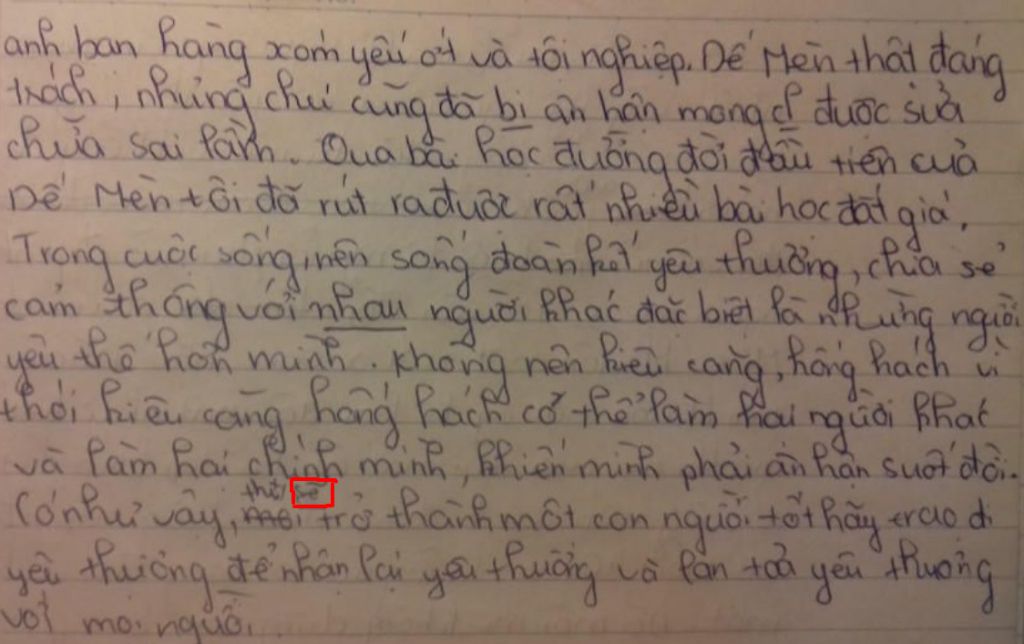 anh bạn hàng xóm yếu ớt và tội nghiệp. Dế Mèn thật đáng
trách, nhưng chú cũng đã bị ân hận mong đ được sửa
chữa sai lầm. Qua bài học đường đời đầu tiên của
Dế Mèn tôi đã rút ra được rất nhiều bài học đắt giá.
Trong cuộc sống, nên sống đoàn kết yêu thương, chia sẻ
cảm thông với nhau người khác đặc biệt là những người
yếu thế hơn mình. Không nên kiêu căng, hống hách vì
thói kiêu căng hống hách có thể làm hại người khác
và làm hại chính mình, khiến mình phải ân hận suốt đời.
thì sẽ
Có như vậy, mới trở thành một con người tốt hãy trao đi
yêu thương để nhận lại yêu thương và lan toả yêu thương
với mọi người.